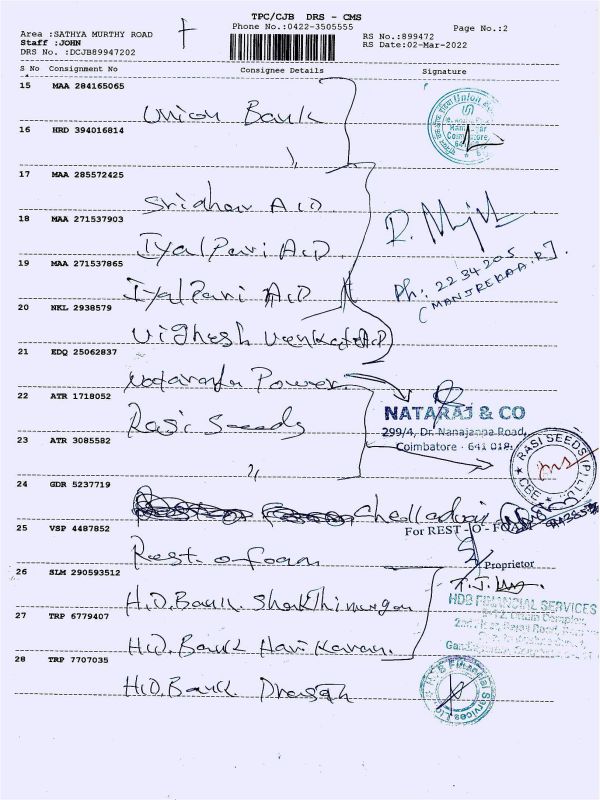 TPC/CJB DRS - CMS
Phone No.:0422-3505555
Page No.:2
Area :SATHYA MURTHY ROAD
Staff :JOHN
DRS No. :DCJB89947202
RS No.:899472
RS Date:02-Mar-2022
S No Consignment No Consignee Details Signature
15 MAA 284165065
Union Bank
16 HRD 394016814
17 MAA 285572425
Sridhar A/D
18 MAA 271537903
IyalPari A/D.
19 MAA 271537865
IyalPari A/D
R.
Ph: 2234205
(MANJREKAA.R].
20 NKL 2938579
Vighesh Venkat A/D
21 EDQ 25062837
Power
22 ATR 1718052
Rasi Seeds
NATARAJ & CO
299/4, Dr. Nanajappa Road,
Coimbatore - 641 018.
23 ATR 3085582
"
RASI SEEDS (P) LTD
CBE
24 GDR 5237719
Chelladurai
For REST - O - FOAM
25 VSP 4487852
Rest o foam
Proprietor
26 SLM 290593512
H.D.Bank Shakthimurgan
HDB FINANCIAL SERVICES
27 TRP 6779407
H.D.Bank Hari Karan.
28 TRP 7707035
H.D.Bank
Financial Services